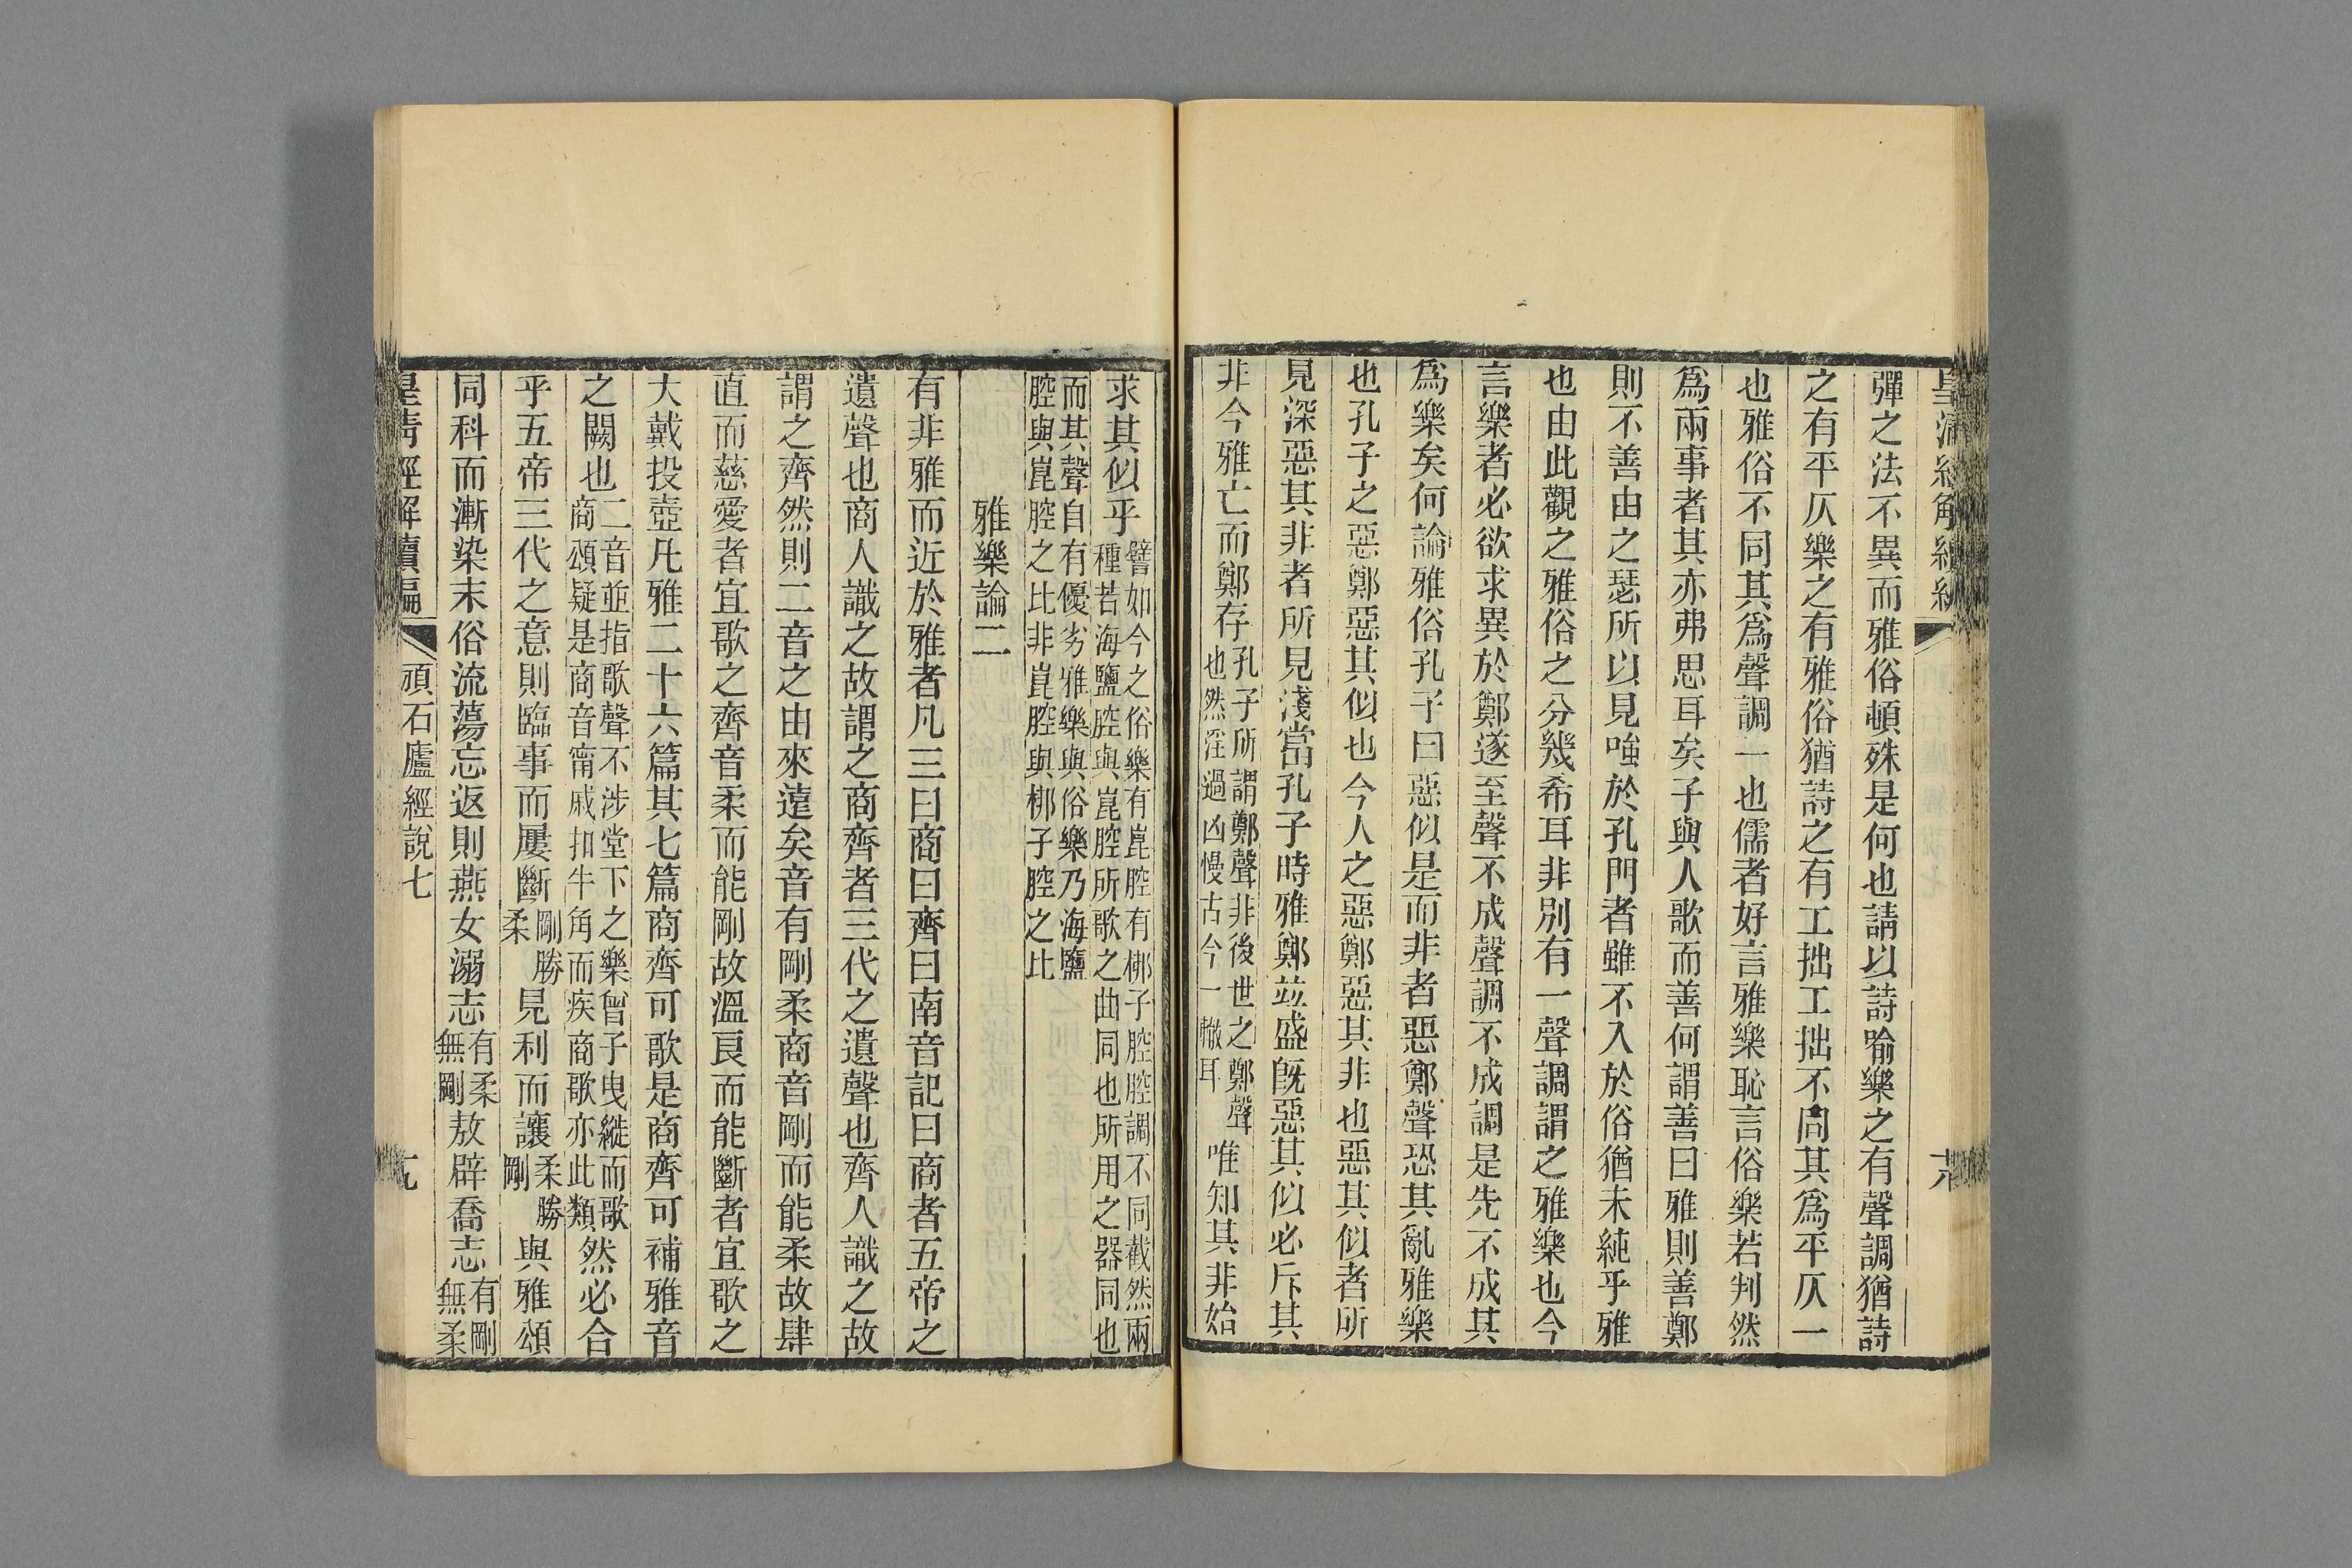 皇清經解續編
十八
彈之法不異而雅俗頓殊是何也請以詩喻樂之有聲調猶詩
之有平仄樂之有雅俗猶詩之有工拙工拙不同其爲平仄一
也雅俗不同其爲聲調一也儒者好言雅樂恥言俗樂若判然
爲兩事者其亦弗思耳矣子與人歌而善何謂善曰雅則善鄭
則不善由之瑟所以見嗤於孔門者雖不入於俗猶未純乎雅
也由此觀之雅俗之分幾希耳非別有一聲調謂之雅樂也今
言樂者必欲求異於鄭遂至聲不成聲調不成調是先不成其
爲樂矣何論雅俗孔子曰惡似是而非者惡鄭聲恐其亂雅樂
也孔子之惡鄭惡其似也今人之惡鄭惡其非也惡其似者所
見深惡其非者所見淺當孔子時雅鄭竝盛旣惡其似必斥其
非今雅亡而鄭存孔子所謂鄭聲非後世之鄭聲也然淫過凶慢古今一轍耳唯知其非始
求其似乎譬如今之俗樂有崑腔有梆子腔腔調不同截然兩種若海鹽腔與崑腔所歌之曲同也所用之器同也
而其聲自有優劣雅樂與俗樂乃海鹽腔與崑腔之比非崑腔與梆子腔之比
雅樂論二
有非雅而近於雅者凡三曰商曰齊曰南音記曰商者五帝之
遺聲也商人識之故謂之商齊者三代之遺聲也齊人識之故
謂之齊然則二音之由來遠矣音有剛柔商音剛而能柔故肆
直而慈愛者宜歌之齊音柔而能剛故溫良而能斷者宜歌之
大戴投壺凡雅二十六篇其七篇商齊可歌是商齊可補雅音
之闕也二音並指歌聲不涉堂下之樂曾子曳縰而歌商頌疑是商音甯戚扣牛角而疾商歌亦此類然必合
乎五帝三代之意則臨事而屢斷剛勝柔見利而讓柔勝剛與雅頌
同科而漸染末俗流蕩忘返則燕女溺志有柔無剛敖辟喬志有剛無柔
皇清經解續編
頑石廬經說七
九